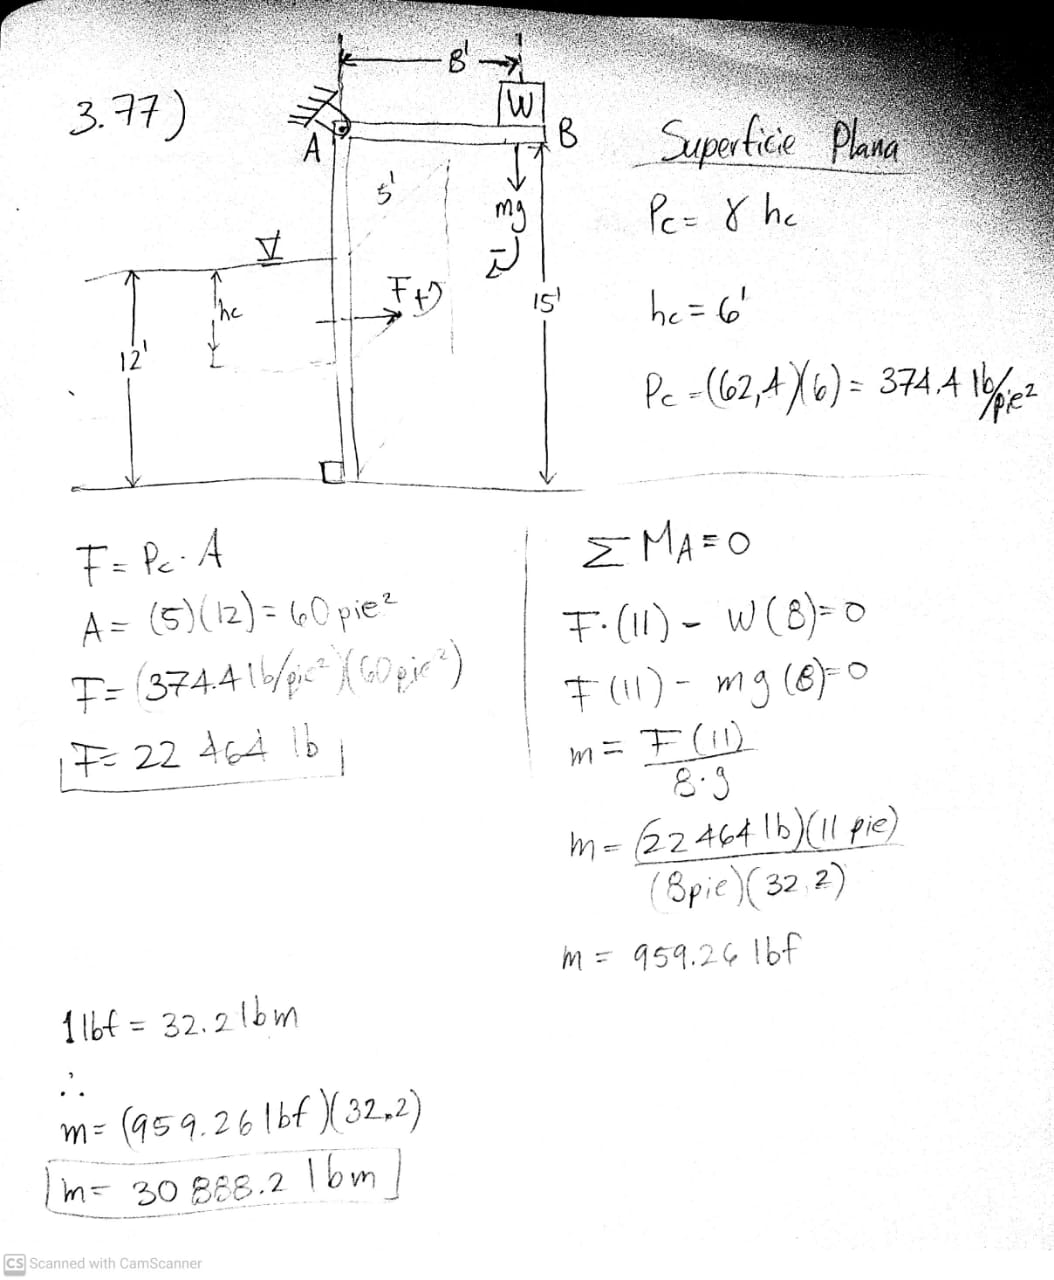 3.77)
8'
W
A
B
5'
mg
F +
hc
12'
15'
Superficie Plana
Pc = γ hc
hc = 6'
Pc = (62,4)(6) = 374.4 lb/pie²
F = Pc · A
A = (5)(12) = 60 pie²
F = (374.4 lb/pie²)(60 pie²)
F = 22 464 lb
Σ MA = 0
F · (11) - W (8) = 0
F (11) - mg (8) = 0
m = F (11)
8 · g
m = (22 464 lb)(11 pie)
(8pie)(32.2)
m = 959.26 lbf
1 lbf = 32.2 lbm
∴
m = (959.26 lbf)(32.2)
m = 30 888.2 lbm
CS Scanned with CamScanner